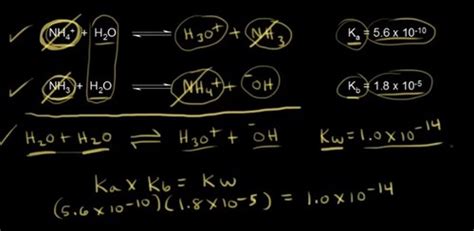 NH₄⁺ + H₂O ⇌ H₃O⁺ + NH₃ Kₐ = 5.6 x 10⁻¹⁰
NH₃ + H₂O ⇌ NH₄⁺ + ⁻OH K_b = 1.8 x 10⁻⁵
H₂O + H₂O ⇌ H₃O⁺ + ⁻OH Kw = 1.0 x 10⁻¹⁴
Ka x Kb = Kw
(5.6 x 10⁻¹⁰)(1.8 x 10⁻⁵) = 1.0 x 10⁻¹⁴